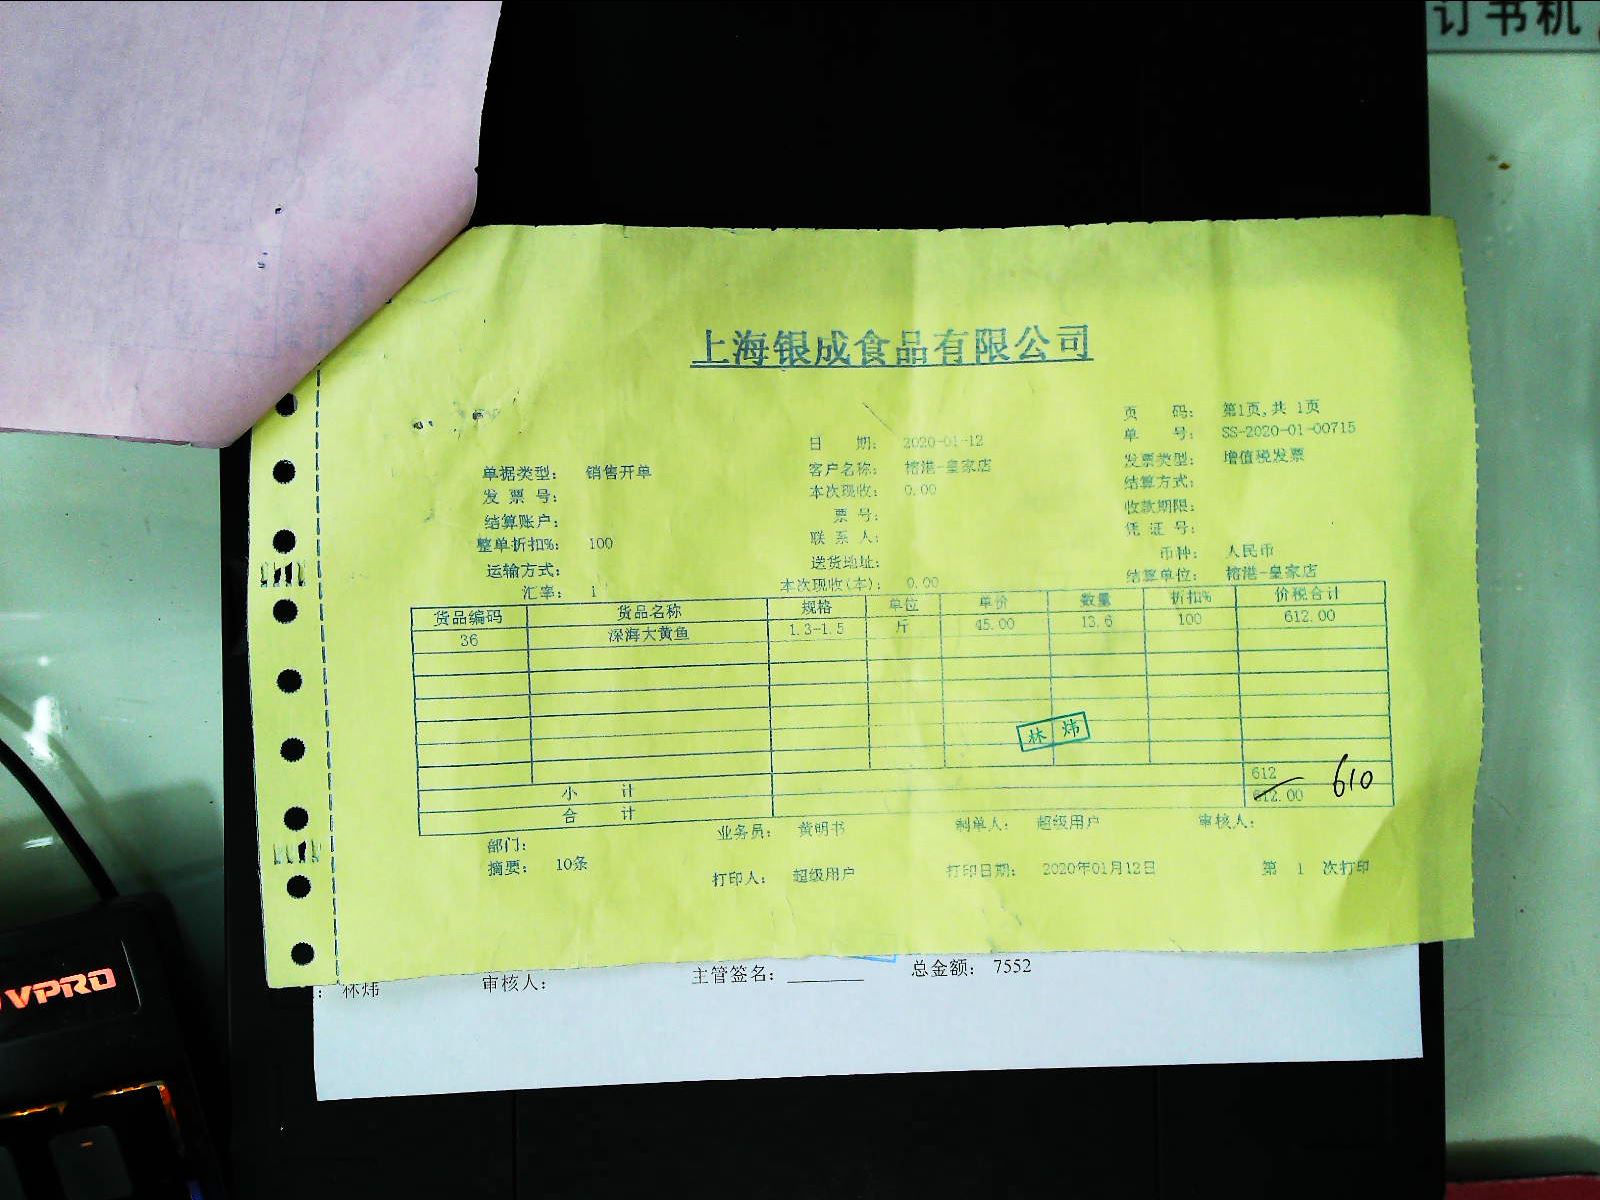 订书机
上海银成食品有限公司
页 码: 第1页,共 1页
日 期: 2020-01-12 单 号: SS-2020-01-00715
单据类型: 销售开单 客户名称: 榕港-皇家店 发票类型: 增值税发票
发 票 号: 本次现收: 0.00 结算方式:
结算账户: 票 号: 收款期限:
整单折扣%: 100 联 系 人: 凭 证 号:
运输方式: 送货地址: 币种: 人民币
汇率: 1 本次现收(本): 0.00 结算单位: 榕港-皇家店
货品编码 货品名称 规格 单位 单价 数量 折扣% 价税合计
36 深海大黄鱼 1.3-1.5 斤 45.00 13.6 100 612.00
林 炜
小 计 612
合 计 612.00 610
部门: 业务员: 黄明书 制单人: 超级用户 审核人:
摘要: 10条 打印人: 超级用户 打印日期: 2020年01月12日 第 1 次打印
: 林炜 审核人: 主管签名: 总金额: 7552
VPRO